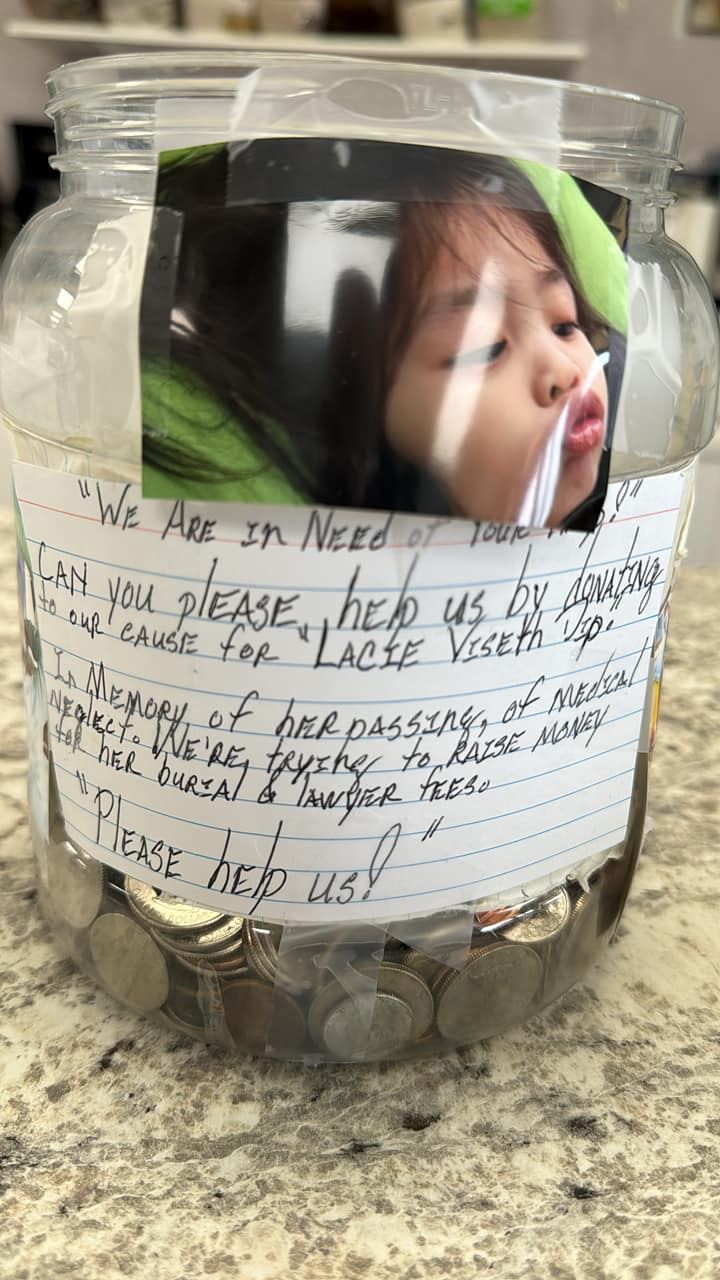 "WE ARE IN NEED OF YOUR !"
CAN YOU PLEASE, HELP US BY DONATING
TO OUR CAUSE FOR "LACIE VISETH VIP.
IN MEMORY, OF HER PASSING, OF MEDICAL
NEGLECT. WE'RE, TRYING TO RAISE MONEY
FOR HER BURIAL & LAWYER FEES.
"PLEASE HELP US!"